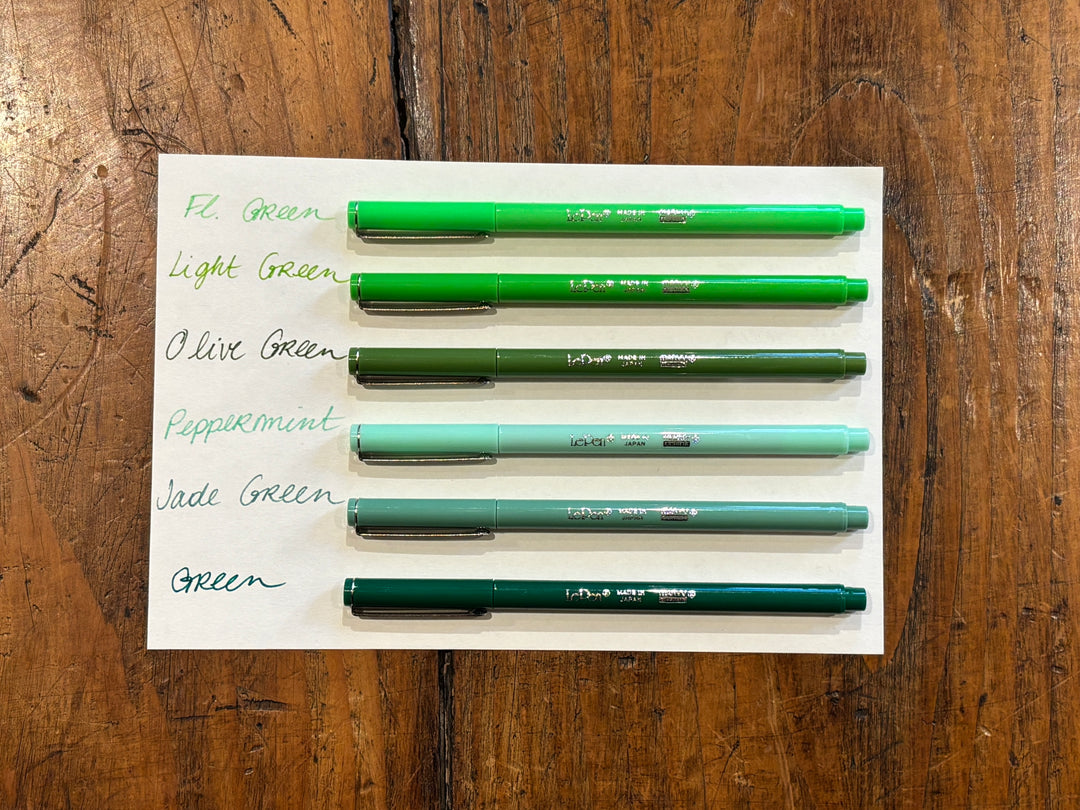 Fl. Green
LePen MADE IN JAPAN
Light Green
LePen MADE IN JAPAN
Olive Green
LePen MADE IN JAPAN
Peppermint
LePen MADE IN JAPAN
Jade Green
LePen MADE IN JAPAN
Green
LePen MADE IN JAPAN